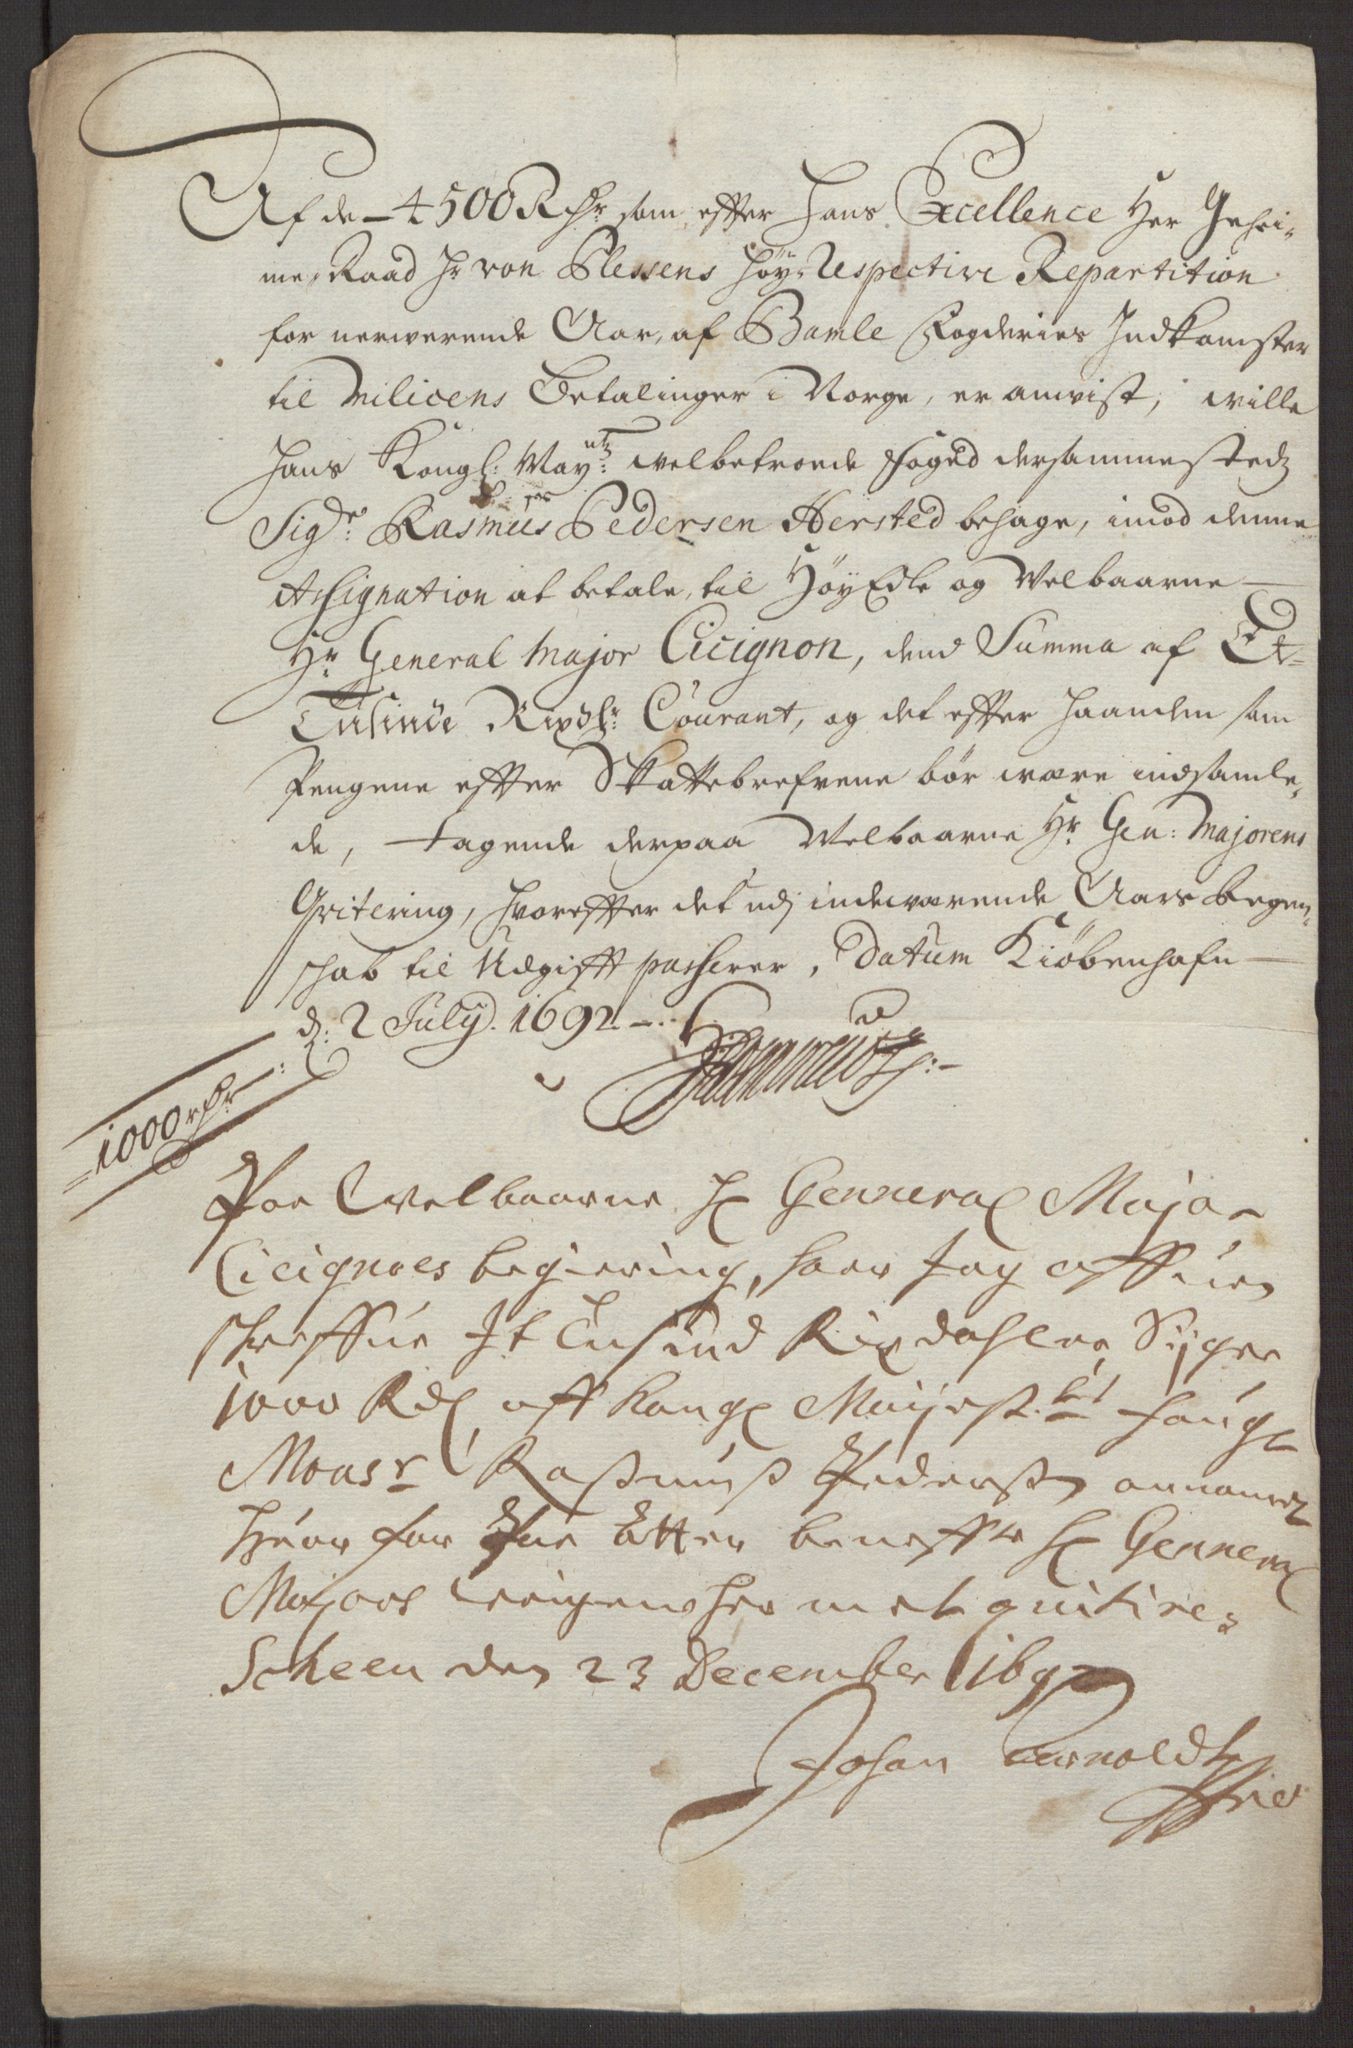 Af de 4500 Rdr som effter Hans Excellence Her Gehei-
me Raad Hr von Plessens höy-Respective Repartition
for nerwerende Aar, af Bamle Fogderies Indkomster
til Milicens Betalinger i Norge, er anvist, wille
Hans Kongl: Maytz: welbetroede Foged dersammestedz
Sigr: Rasmus Pedersen Hersted behage, imod denne
Assignation at betale, til HöyEdle og Velbaarne
Hr General Major Cicignon, dend Summa af Et-
Tusinde Rixdlr: Courant, og det effter haanden som
Pengene effter Skattebrefvene bör være indsamle-
de, tagende derpaa Velbaarne Hr Gen: Majorens
Qvitering, hvoreffter det udj indeværende Aars Regen-
schab til Udgifft passerer, Datum Kiöbenhafn
d: 2 July. 1692
1000 rdr
Paa Welbaarne H Genneral Major
Cicignoes begiering, haer Jeg offuen
schreffne Et Tusind Rixdahler, Siger
1000 Rd aff Kongl Maijest:ts foug
Monsr Rasmus Pedersen annammet
Huor for Paa bemelte H General
Majors weigne her met quitires
Scheen den 23 December 1692
Johan Arnoldt